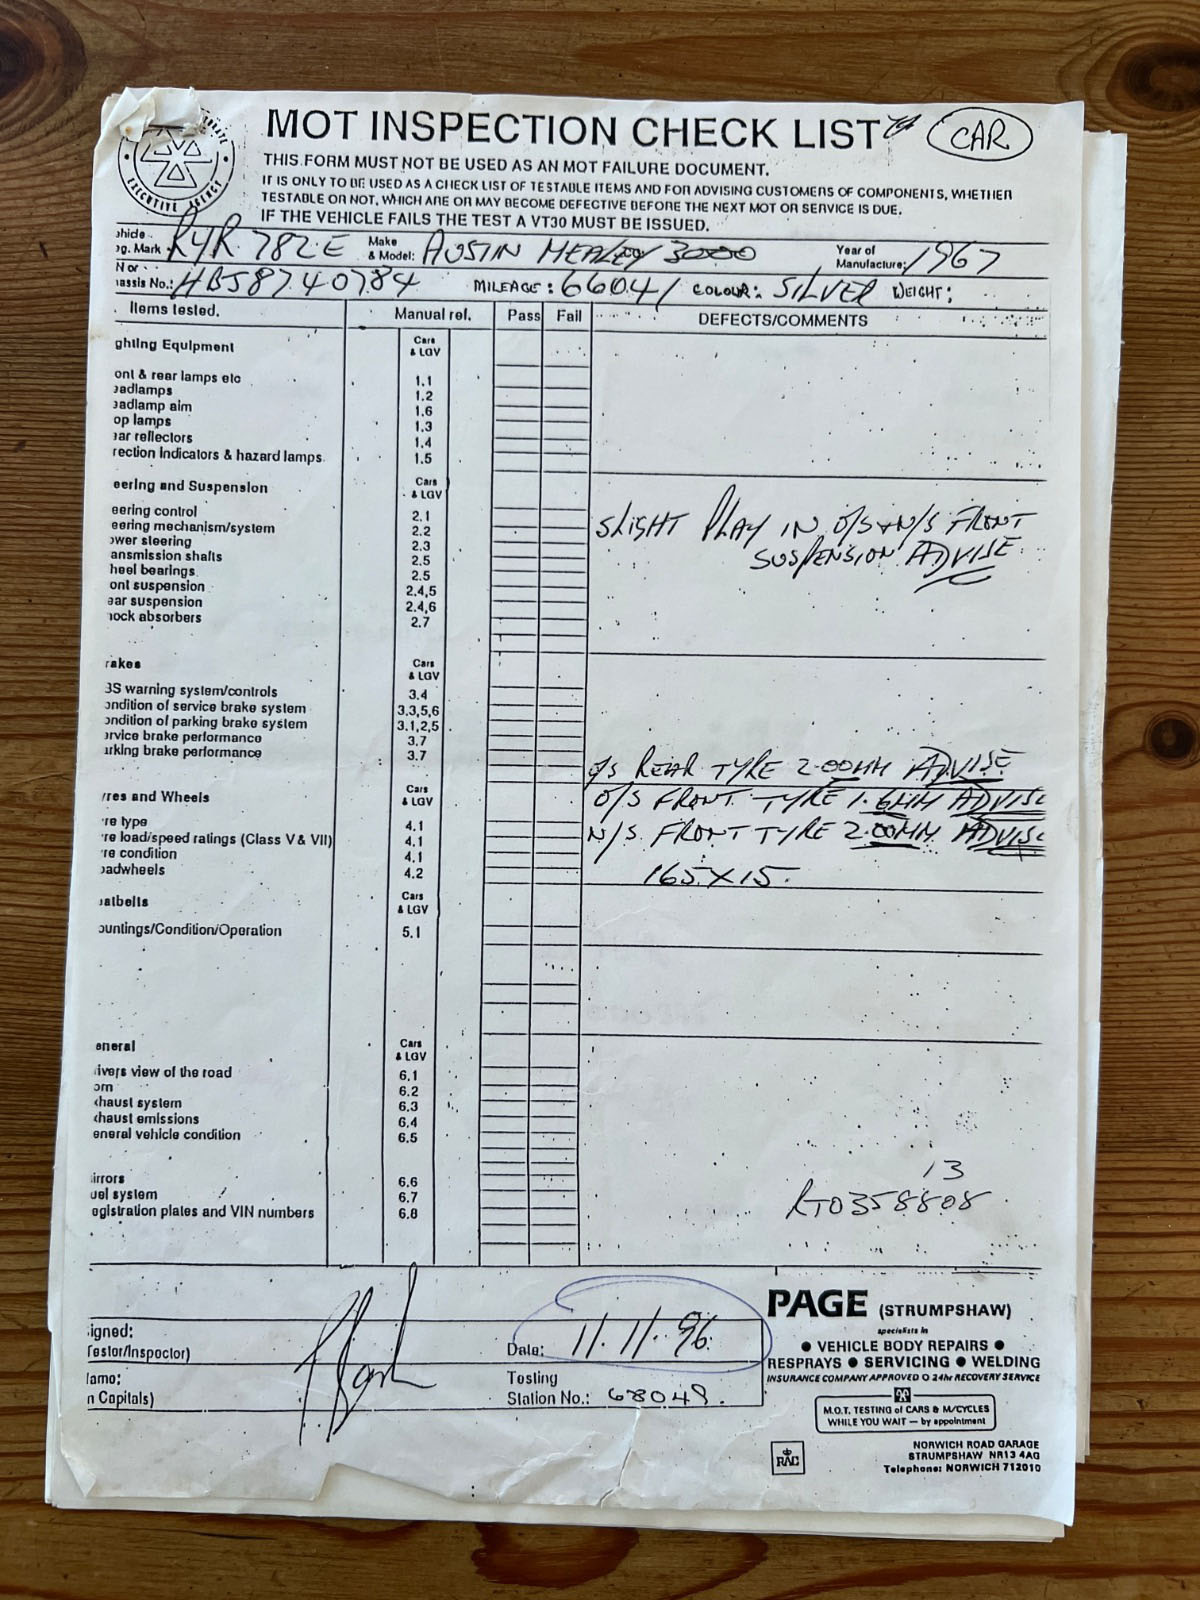 MOT INSPECTION CHECK LIST
CAR
THIS FORM MUST NOT BE USED AS AN MOT FAILURE DOCUMENT.
IT IS ONLY TO BE USED AS A CHECK LIST OF TESTABLE ITEMS AND FOR ADVISING CUSTOMERS OF COMPONENTS, WHETHER
TESTABLE OR NOT, WHICH ARE OR MAY BECOME DEFECTIVE BEFORE THE NEXT MOT OR SERVICE IS DUE.
IF THE VEHICLE FAILS THE TEST A VT30 MUST BE ISSUED.
EXECUTIVE AGENCY
ehicle
eg. Mark RYR 782E Make & Model: AUSTIN HEALEY 3000 Year of Manufacture: 1967
hassis No.: HBJ8740784 MILEAGE: 66041 COLOUR: SILVER WEIGHT:
Items tested. Manual ref. Pass Fail DEFECTS/COMMENTS
ghting Equipment Cars & LGV
ont & rear lamps etc 1.1
eadlamps 1.2
eadlamp aim 1.6
op lamps 1.3
ear reflectors 1.4
rection Indicators & hazard lamps 1.5
eering and Suspension Cars & LGV
eering control 2.1
SLIGHT PLAY IN O/S + N/S FRONT
eering mechanism/system 2.2
ower steering 2.3
SUSPENSION ADVISE
ansmission shafts 2.5
heel bearings 2.5
ont suspension 2.4,5
ear suspension 2.4,6
hock absorbers 2.7
rakes Cars & LGV
BS warning system/controls 3.4
ondition of service brake system 3.3,5,6
ondition of parking brake system 3.1,2,5
ervice brake performance 3.7
arking brake performance 3.7
REAR TYRE 2.00MM ADVISE
yres and Wheels Cars & LGV
O/S FRONT TYRE 1.6MM ADVISE
yre type 4.1
N/S FRONT TYRE 2.00MM ADVISE
yre load/speed ratings (Class V & VII) 4.1
yre condition 4.1
oadwheels 4.2
165 X 15.
eatbelts Cars & LGV
ountings/Condition/Operation 5.1
eneral Cars & LGV
rivers view of the road 6.1
orn 6.2
xhaust system 6.3
xhaust emissions 6.4
eneral vehicle condition 6.5
13
irrors 6.6
uel system 6.7
RT0358808
egistration plates and VIN numbers 6.8
igned:
Testor/Inspector)
Date: 11.11.96.
ame:
n Capitals)
Testing
Station No.: 68049.
PAGE (STRUMPSHAW)
specialists in
● VEHICLE BODY REPAIRS ●
RESPRAYS ● SERVICING ● WELDING
INSURANCE COMPANY APPROVED O 24hr RECOVERY SERVICE
M.O.T. TESTING of CARS & M/CYCLES
WHILE YOU WAIT — by appointment
RAC
NORWICH ROAD GARAGE
STRUMPSHAW NR13 4AG
Telephone: NORWICH 712010